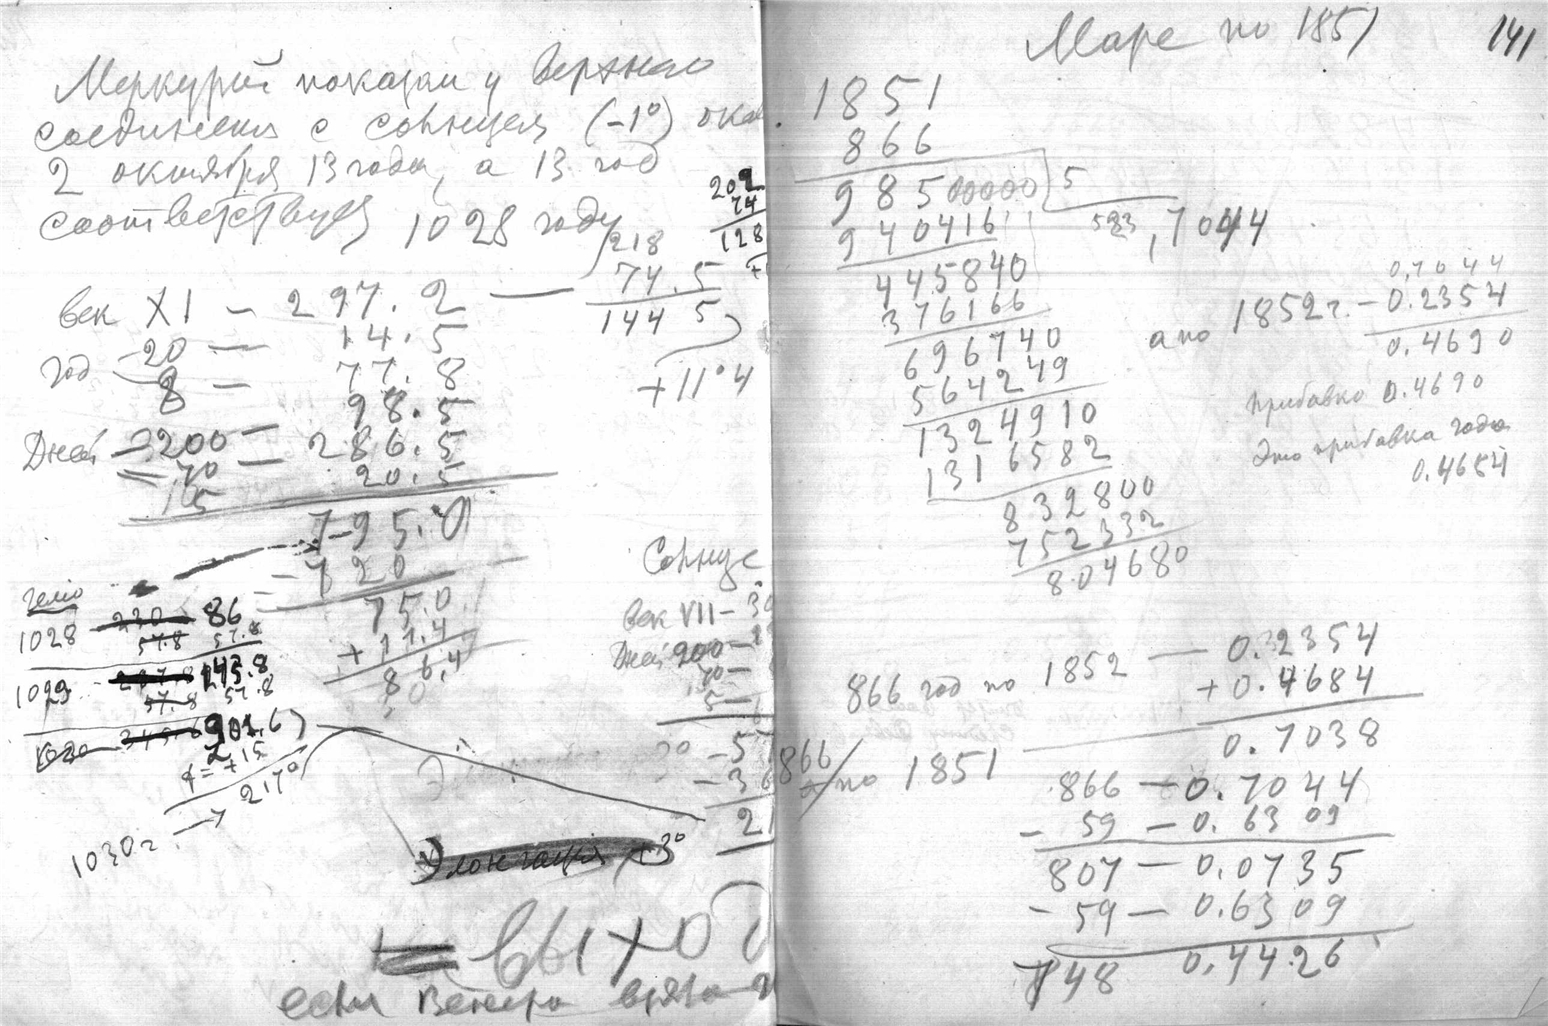 Меркурий показан у верхнего
соединения с солнцем (-1°) ока
2 октября 13 года, а 13 год
соответствует 1028 году
202
74
128
218
74.5
144 5
+11°4
век XI — 297.2
20 — 14.5
год 8 — 77.8
98.5
Дней 200 — 286.5
70 — 20.5
5
795.0
- 720
75.0
+ 11.4
86.4
гелио
1028 230 86
57.8 57.8
1029 143.8
57.8 57.8
1030 201.6
+15
→ 217°
1030 г
Солнце
век VII — 30
Дней 200 — 1
70 —
5 —
- 36
2
Элонгация -3°
= вых од
если Венера взята
Марс по 1851
141
1851
866
985 00000 5
940416 583,7044
445840
376166
696740
564249
1324910
1316582
832800
752332
804680
0,7044
а по 1852 г. — 0.2354
0.4690
прибавко 0.4690
Это прибавка года
0.4684
866 год по 1852 — 0.2354
+ 0.4684
0.7038
866 по 1851
866 — 0.7044
- 59 — 0.6309
807 — 0.0735
- 59 — 0.6309
748 0.4426